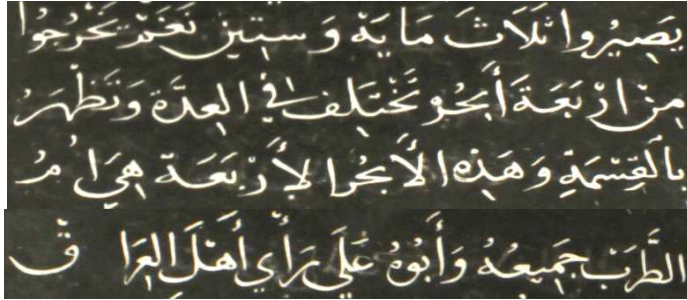 يَصِيرُوا ثَلَاثَ مَايَة وَسِتين نَغَمْ يَخْرُجُوا
مِنْ ارْبَعَةَ أَبحُر تَخْتَلِف في العِدَّة وَتَظْهَرُ
بالقِسْمَةِ وَهَذِه الأَبحُر الأَرْبَعَة هِيَ اُ مُ
الطَّرَب جَمِيعُهُ وَأَبُوهُ عَلَى رَأْي أَهْلَ العِرَا قْ